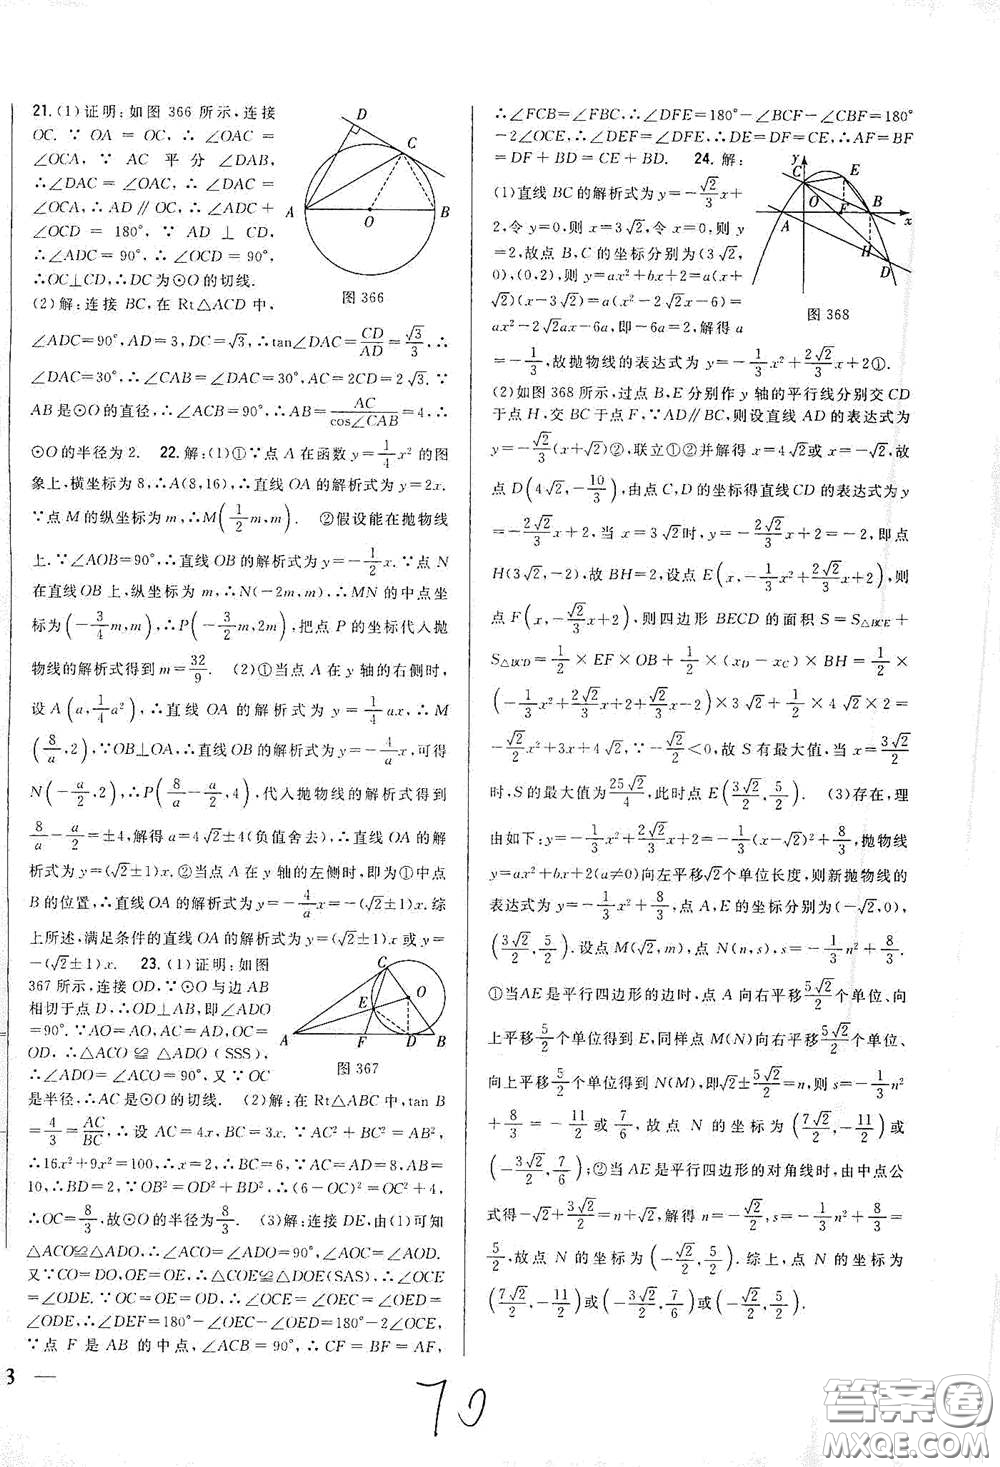 21.(1)证明:如图 366 所示,连接
OC. ∵ OA = OC, ∴∠OAC =
∠OCA, ∵ AC 平分∠DAB,
∴∠DAC = ∠OAC, ∴∠DAC =
∠OCA, ∴AD∥OC, ∴∠ADC +
∠OCD = 180°, ∵ AD ⊥ CD,
∴∠ADC = 90°, ∴∠OCD = 90°,
∴OC⊥CD, ∴DC为⊙O的切线.
(2)解:连接 BC,在 Rt△ACD 中,
∠ADC=90°, AD=3, DC=√3, ∴tan∠DAC=CD/AD=√3/3,
∴∠DAC=30°, ∴∠CAB=∠DAC=30°, AC=2CD=2√3, ∵
AB是⊙O的直径, ∴∠ACB=90°, ∴AB=AC/cos∠CAB=4, ∴
⊙O的半径为 2. 22.解:(1)①∵点 A 在函数 y=1/4x² 的图
象上,横坐标为 8, ∴A(8,16), ∴直线 OA 的解析式为 y=2x.
∵点 M 的纵坐标为 m, ∴M(1/2m,m). ②假设能在抛物线
上. ∵∠AOB=90°, ∴直线 OB 的解析式为 y=-1/2x. ∵点 N
在直线 OB 上,纵坐标为 m, ∴N(-2m,m), ∴MN 的中点坐
标为(-3/4m,m), ∴P(-3/2m,2m),把点 P 的坐标代入抛
物线的解析式得到 m=32/9. (2)①当点 A 在 y 轴的右侧时,
设 A(a,1/4a²), ∴直线 OA 的解析式为 y=1/4ax, ∴M
(8/a,2), ∵OB⊥OA, ∴直线 OB 的解析式为 y=-4/ax,可得
N(-a/2,2), ∴P(8/a-a/2,4),代入抛物线的解析式得到
8/a-a/2=±4,解得 a=4√2±4(负值舍去), ∴直线 OA 的解
析式为 y=(√2±1)x. ②当点 A 在 y 轴的左侧时,即为①中点
B 的位置, ∴直线 OA 的解析式为 y=-4/ax=-(√2±1)x. 综
上所述,满足条件的直线 OA 的解析式为 y=(√2±1)x 或 y=
-(√2±1)x. 23.(1)证明:如图
367 所示,连接 OD. ∵⊙O 与边 AB
相切于点 D, ∴OD⊥AB,即∠ADO
=90°. ∵ AO = AO, AC = AD, OC =
OD, ∴△ACO ≌ △ADO (SSS), ∴
∠ADO=∠ACO=90°, 又∵ OC
是半径, ∴AC是⊙O的切线. (2)解:在 Rt△ABC 中,tan B
=4/3=AC/BC, ∴设 AC=4x, BC=3x. ∵AC²+BC²=AB²,
∴16x²+9x²=100, ∴x=2, ∴BC=6. ∵AC=AD=8, AB=
10, ∴BD=2. ∵OB²=OD²+BD², ∴(6-OC)²=OC²+4,
∴OC=8/3,故⊙O的半径为8/3. (3)解:连接 DE,由(1)可知
△ACO≌△ADO, ∴∠ACO=∠ADO=90°, ∠AOC=∠AOD.
又∵CO=DO, OE=OE, ∴△COE≌△DOE(SAS), ∴∠OCE
=∠ODE. ∵OC=OE=OD, ∴∠OCE=∠OEC=∠OED=
∠ODE, ∴∠DEF=180°-∠OEC-∠OED=180°-2∠OCE.
∵点 F 是 AB 的中点, ∠ACB = 90°, ∴CF = BF = AF,
D
C
A
O
B
图 366
C
O
E
A
F
D
B
图 367
∴∠FCB=∠FBC, ∴∠DFE=180°-∠BCF-∠CBF=180°
-2∠OCE, ∴∠DEF=∠DFE, ∴DE=DF=CE, ∴AF=BF
=DF+BD=CE+BD. 24.解:
(1)直线 BC 的解析式为 y=-√2/3x+
2,令 y=0,则 x=3√2,令 x=0,则 y=
2,故点 B,C 的坐标分别为(3√2,
0),(0,2),则 y=ax²+bx+2=a(x+
√2)(x-3√2)=a(x²-2√2x-6)=
ax²-2√2ax-6a,即-6a=2,解得 a
=-1/3,故抛物线的表达式为 y=-1/3x²+2√2/3x+2①.
(2)如图 368 所示,过点 B,E 分别作 y 轴的平行线分别交 CD
于点 H,交 BC 于点 F, ∵AD∥BC,则设直线 AD 的表达式为
y=-√2/3(x+√2)②,联立①②并解得 x=4√2或x=-√2,故
点 D(4√2,-10/3),由点 C,D 的坐标得直线 CD 的表达式为 y
=-2√2/3x+2,当 x=3√2时,y=-2√2/3x+2=-2,即点
H(3√2,-2),故 BH=2,设点 E(x,-1/3x²+2√2/3x+2),则
点 F(x,-√2/3x+2),则四边形 BECD 的面积 S=S△BCE+
S△BCD=1/2×EF×OB+1/2×(xD-xC)×BH=1/2
×(-1/3x²+2√2/3x+2+√2/3x-2)×3√2+1/2×4√2×2=
-√2/2x²+3x+4√2. ∵-√2/2<0,故 S 有最大值,当 x=3√2/2
时,S 的最大值为25√2/4,此时点 E(3√2/2,5/2). (3)存在,理
由如下:y=-1/3x²+2√2/3x+2=-1/3(x-√2)²+8/3,抛物线
y=ax²+bx+2(a≠0)向左平移√2个单位长度,则新抛物线的
表达式为 y=-1/3x²+8/3,点 A,E 的坐标分别为(-√2,0),
(3√2/2,5/2). 设点 M(√2,m),点 N(n,s),s=-1/3n²+8/3.
①当AE是平行四边形的边时,点 A 向右平移5√2/2个单位、向
上平移5/2个单位得到 E,同样点 M(N)向右平移5√2/2个单位、
向上平移5/2个单位得到 N(M),即√2±5√2/2=n,则 s=-1/3n²
+8/3=-11/2或7/6,故点 N 的坐标为(7√2/2,-11/2)或
(-3√2/2,7/6);②当 AE 是平行四边形的对角线时,由中点公
式得-√2+3√2/2=n+√2,解得 n=-√2/2,s=-1/3n²+8/3=
5/2,故点 N 的坐标为(-√2/2,5/2). 综上,点 N 的坐标为
(7√2/2,-11/2)或(-3√2/2,7/6)或(-√2/2,5/2).
y
C
E
O
F
B
A
x
H
D
图 368
3 —
70
答案卷
MXQE.COM